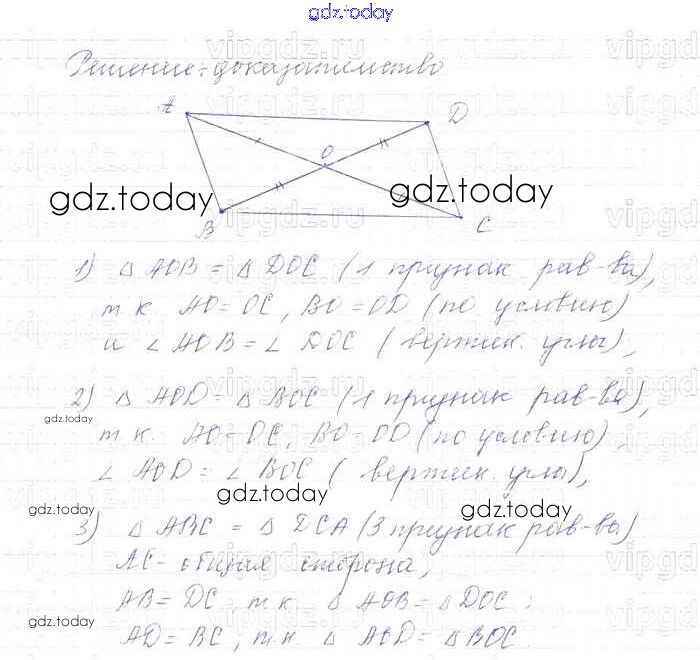 gdz.today
Решение: доказательство
A
D
O
B
C
gdz.today
gdz.today
1) △ AOB = △ DOC (1 признак рав-ва),
т.к. AO = OC, BO = OD (по условию)
и ∠ AOB = ∠ DOC (вертик. углы),
2) △ AOD = △ BOC (1 признак рав-ва),
gdz.today
т.к. AO = OC, BO = OD (по условию),
∠ AOD = ∠ BOC (вертик. углы),
gdz.today
gdz.today
gdz.today
3) △ ABC = △ DCA (3 признак рав-ва)
AC - общая сторона,
AB = DC, т.к. △ AOB = △ DOC;
gdz.today
AD = BC, т.к. △ AOD = △ BOC.